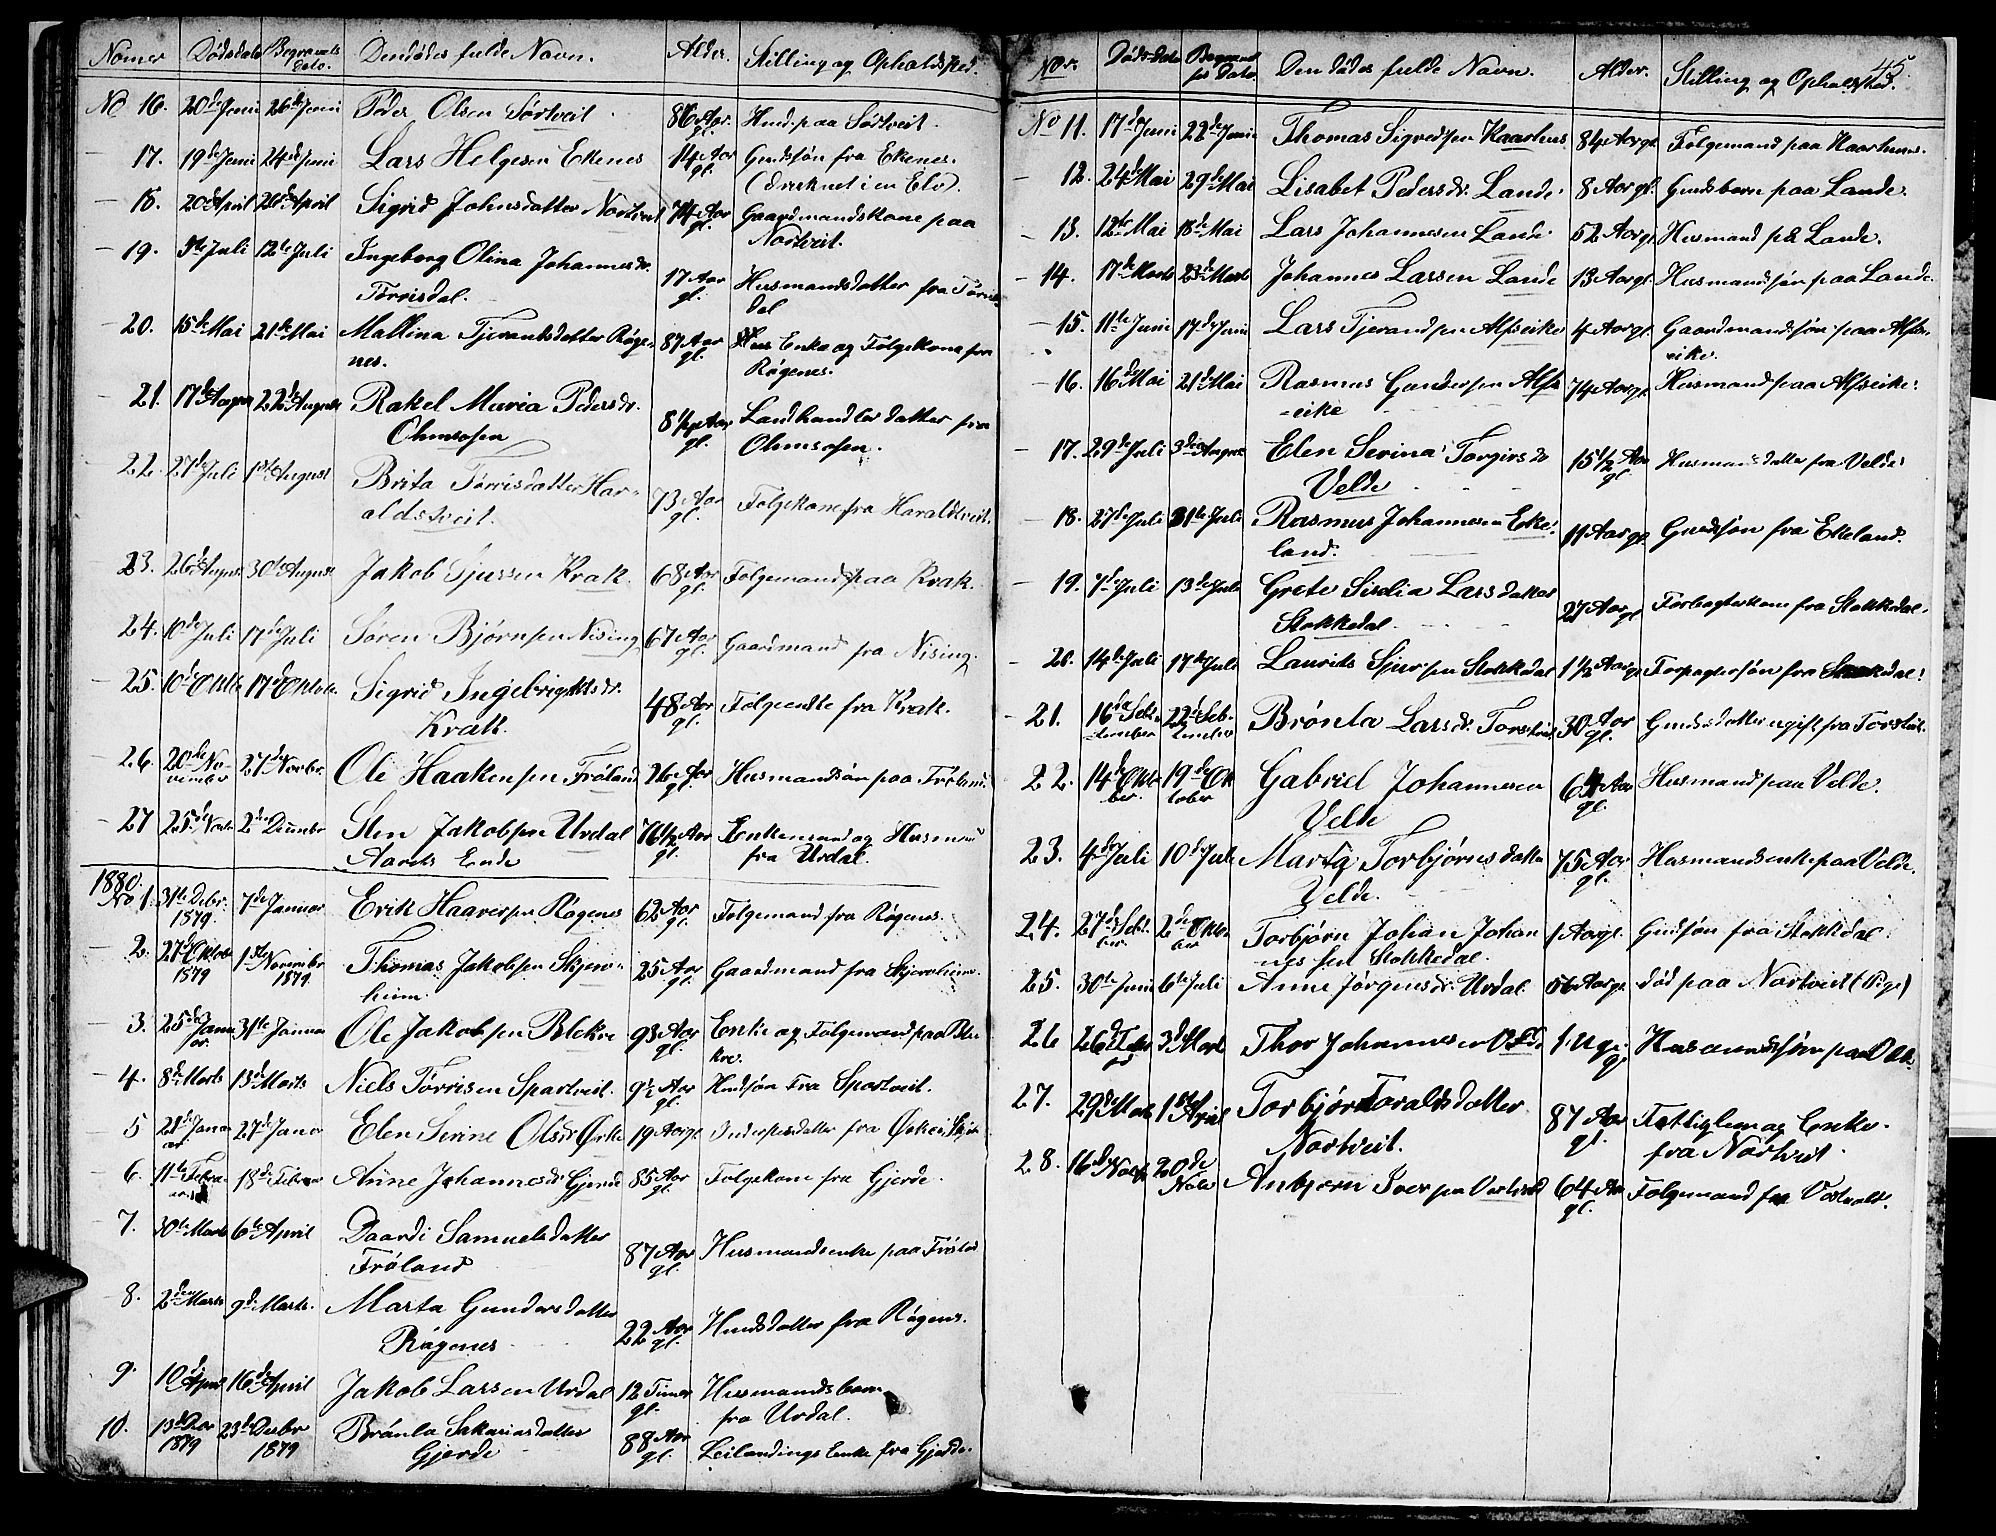 Nomer Dødsdato Begravels dato. Den dødes fulde Navn. Alder. Stilling og Opholdsted.
No 16. 20de Juni 26de Juni Peder Olsen Sørtveit 86 Aar gl. Husd. paa Sørtveit.
17. 19de Juni 24de Juni Lars Helgesen Ekenes 14 Aar gl. Grdsøn fra Ekenes.
(druknet i en Elv).
18. 20de April 26de April Sigrid Johnsdatter Nortveit 74 Aar gl. Gaardmandskone paa
Nortveit.
19. 5te Juli 12te Juli Ingeborg Olina Johannesdr.
Tørrisdal. 17 Aar gl. Husmandsdatter fra Tørris-
dal
20. 15de Mai 21de Mai Mallina Tjerandsdatter Røge-
nes. 87 Aar gl. Enke og Følgekone fra
Røgenes.
21. 17de August 22de August Rakel Maria Pedersdr.
Ølmsosen 8 Aar gl. Landhandler datter fra
Ølensosen.
22. 27de Juli 1ste August Brita Tørrisdatter Har-
aldstveit. 73 Aar gl. Følgekone fra Haraldtveit.
23. 26de August 30te August Jakob Sjursen Krak. 68 Aar gl. Følgemand paa Krak.
24. 10de Juli 17de Juli Søren Bjørnsen Nising 67 Aar gl. Gaardmand fra Nising.
25. 10de Oktb. 17de Oktob. Sigrid Ingebrigtsdr.
Krak. 48 Aar gl. Følgeenke fra Krak.
26. 20de No-
vember 27de Novbr. Ole Haakensen Frøland 26 Aar gl. Husmandsøn paa Frøland.
27 25de Novb. 2den Decmbr Sten Jakobsen Urdal 76½ Aar gl. Enkemand og Husmand
Aarets Ende fra Urdal.
1880.
No 1. 31te Debr.
1879. 7de Januar Erik Haaversen Røgenes 62 Aar gl. Følgemand fra Røgenes.
2. 27de Oktob
1879 1ste Novembr
1879. Thomas Jakobsen Skjern-
heim. 25 Aar gl. Gaardmand fra Skjernheim.
3. 25de Janu
ar. 31te Januar Ole Jakobsen Blekre 93 Aar gl. Enke og Følgemand paa Ble-
kre.
4. 8de Marts 13de Marts Niels Tørrisen Sportveit. 9½ Aar gl. Husdsøn fra Sportveit.
5 21de Janu
ar 27de Janar Elen Serine Olsdr Ørke 19 Aar gl.
6. 11te Febru-
ar 18de Februar Anne Johannesdr. Gjerde 85 Aar gl. Følgekone fra Gjerde.
7. 30te Marts 6te April Daardi Samuelsdatter
Frøland 87 Aar gl. Husmandsenke paa Frøland
8. 2den Marts 9de Marts. Marta Gundersdatter
Røgenes 22 Aar gl. Husdsdatter fra Røgenes.
9. 10de April 16de April Jakob Larssen Urdal 12 Timer gl. Husmandsbarn
fra Urdal.
10. 13de
1879 23de Decbr
1879 Brønla Sakariasdatter
Gjerde 88 Aar gl. Leilandings Enke fra Gjerde.
45.
Nor. Døds-Dato Begravel ses Dato Den dødes fulde Navn. Alder. Stilling og Opholdsted.
No 11. 17de Juni 22de Juni Thomas Sigvedsen Kaarhus 84 Aar gl. Følgemand paa Kaarhuus.
12. 24de Mai 29de Mai Lisabet Pedersdr. Lande 8 Aar gl. Grdsbarn paa Lande.
13. 12te Mai 18de Mai Lars Johannesen Lande 52 Aar gl. Husmand paa Lande.
14. 17de Marts 23de Marts Johannes Larsen Lande 13 Aar gl. Husmandsøn paa Lande.
15. 11te Juni 17de Juni Lars Tjerandsen Alfseike 4 Aar gl. Gaardmandsøn paa Alfs-
eike.
16. 16de Mai 21de Mai Rasmus Gundersen Alfs
-eike 74 Aar gl. Husmand paa Alfseike.
17. 29de Juli 3die August Elen Serina Torgirsdr
Velde 15½ Aar gl. Husmansdatter fra Velde.
18. 27de Juli 31te Juli Rasmus Johannesen Eke-
land. 11 Aar gl. Grdsøn fra Ekeland.
19. 7de Juli 13de Juli Grete Siselia Larsdatter
Stokkedal 27 Aar gl. Forpagterkone fra Stokkedal.
20. 14de Juli 17de Juli Laurits Sjursen Stokkedal 1½ Aar gl. Forpagtersøn fra Stokkedal.
21. 16de Sep-
tember 22de Sep-
tember Brønla Larsdr. Torstveit 30 Aar gl. Grdsdatter ugift fra Torstveit.
22. 14de Okto
ber. 19de Ok
tober Gabriel Johannesen
Velde 64 Aar gl. Husmand paa Velde.
23. 4de Juli 10de Juli Marta Torbjørnsdatter
Velde. 75 Aar gl. Husmandsenke paa Velde.
24. 27de Sebt.
ber. 2den Okto
ber Torbjørn Johan Johan
nessen Stokkedal. 1 Aar gl. Grdsøn fra Stokkedal.
25. 30te Juni 6te Juli Anne Jørgensdr. Urdal 56 Aar gl. død paa Nortveit (Pige)
26 26de Febr 3de Marts Thor Johannesen 1 Uge gl. Husmandssøn paa
27. 29de Marts 1ste April Torbjør Taraldsdatter
Nortveit. 87 Aar gl. Fattiglem og Enke
fra Nortveit.
28. 16de Novb 20de
Novb Anbjørn Iversen 64 Aar gl. Følgemand fra